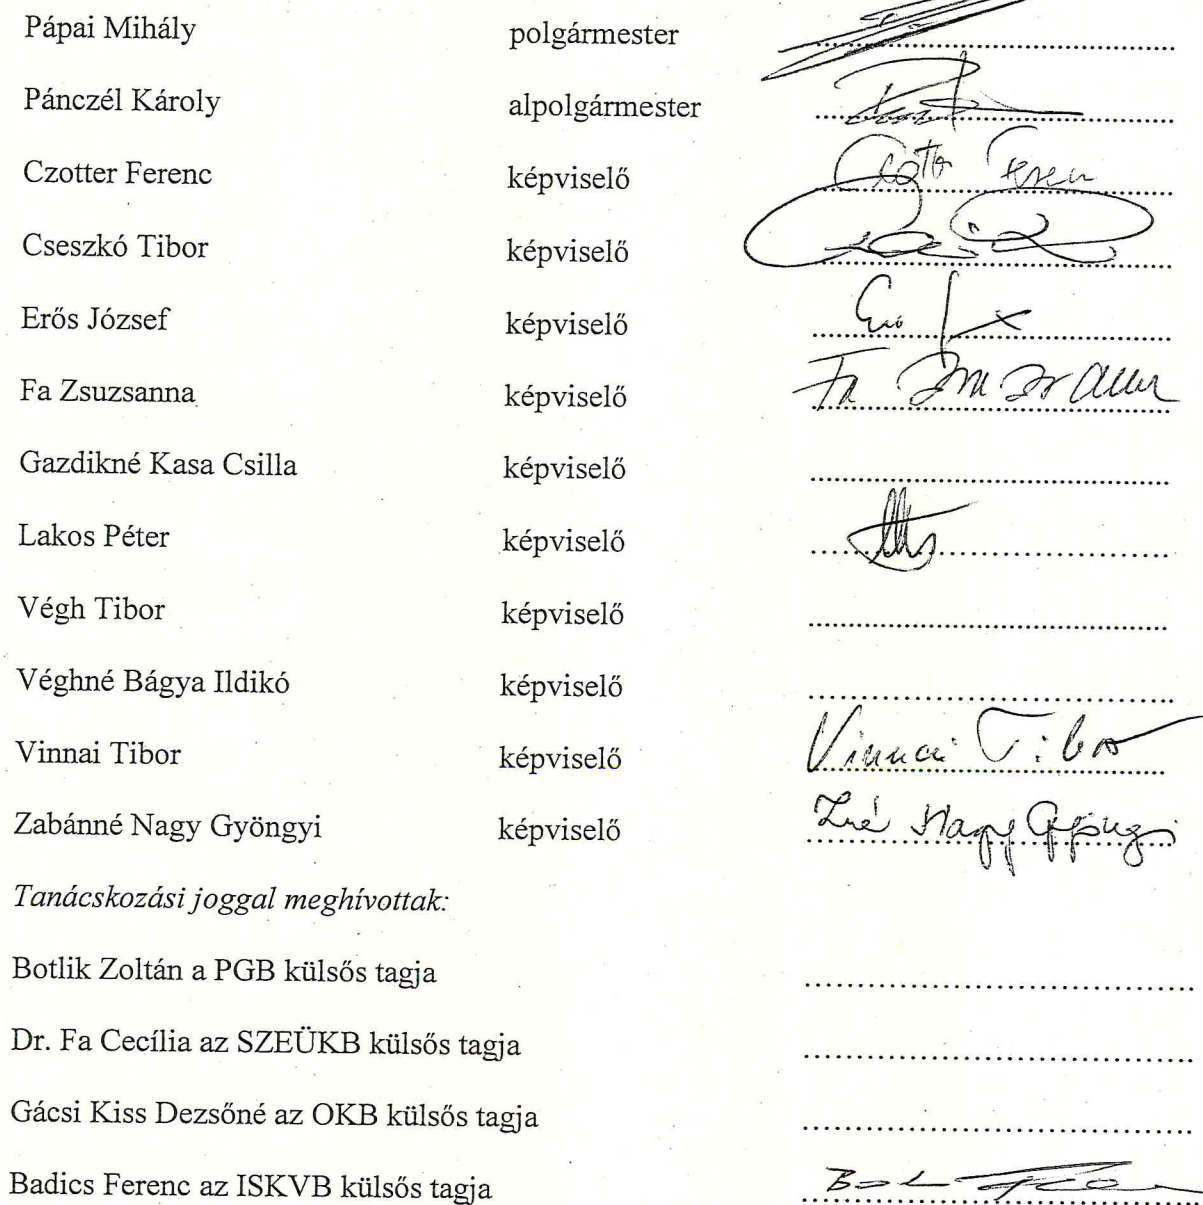 Pápai Mihály polgármester
Pánczél Károly alpolgármester
Czotter Ferenc képviselő
Cseszkó Tibor képviselő
Erős József képviselő
Fa Zsuzsanna képviselő Fa
Gazdikné Kasa Csilla képviselő
Lakos Péter képviselő
Végh Tibor képviselő
Véghné Bágya Ildikó képviselő
Vinnai Tibor képviselő Vinnai Tibor
Zabánné Nagy Gyöngyi képviselő Zné Nagy Gyöngyi
Tanácskozási joggal meghívottak:
Botlik Zoltán a PGB külsős tagja
Dr. Fa Cecília az SZEÜKB külsős tagja
Gácsi Kiss Dezsőné az OKB külsős tagja
Badics Ferenc az ISKVB külsős tagja